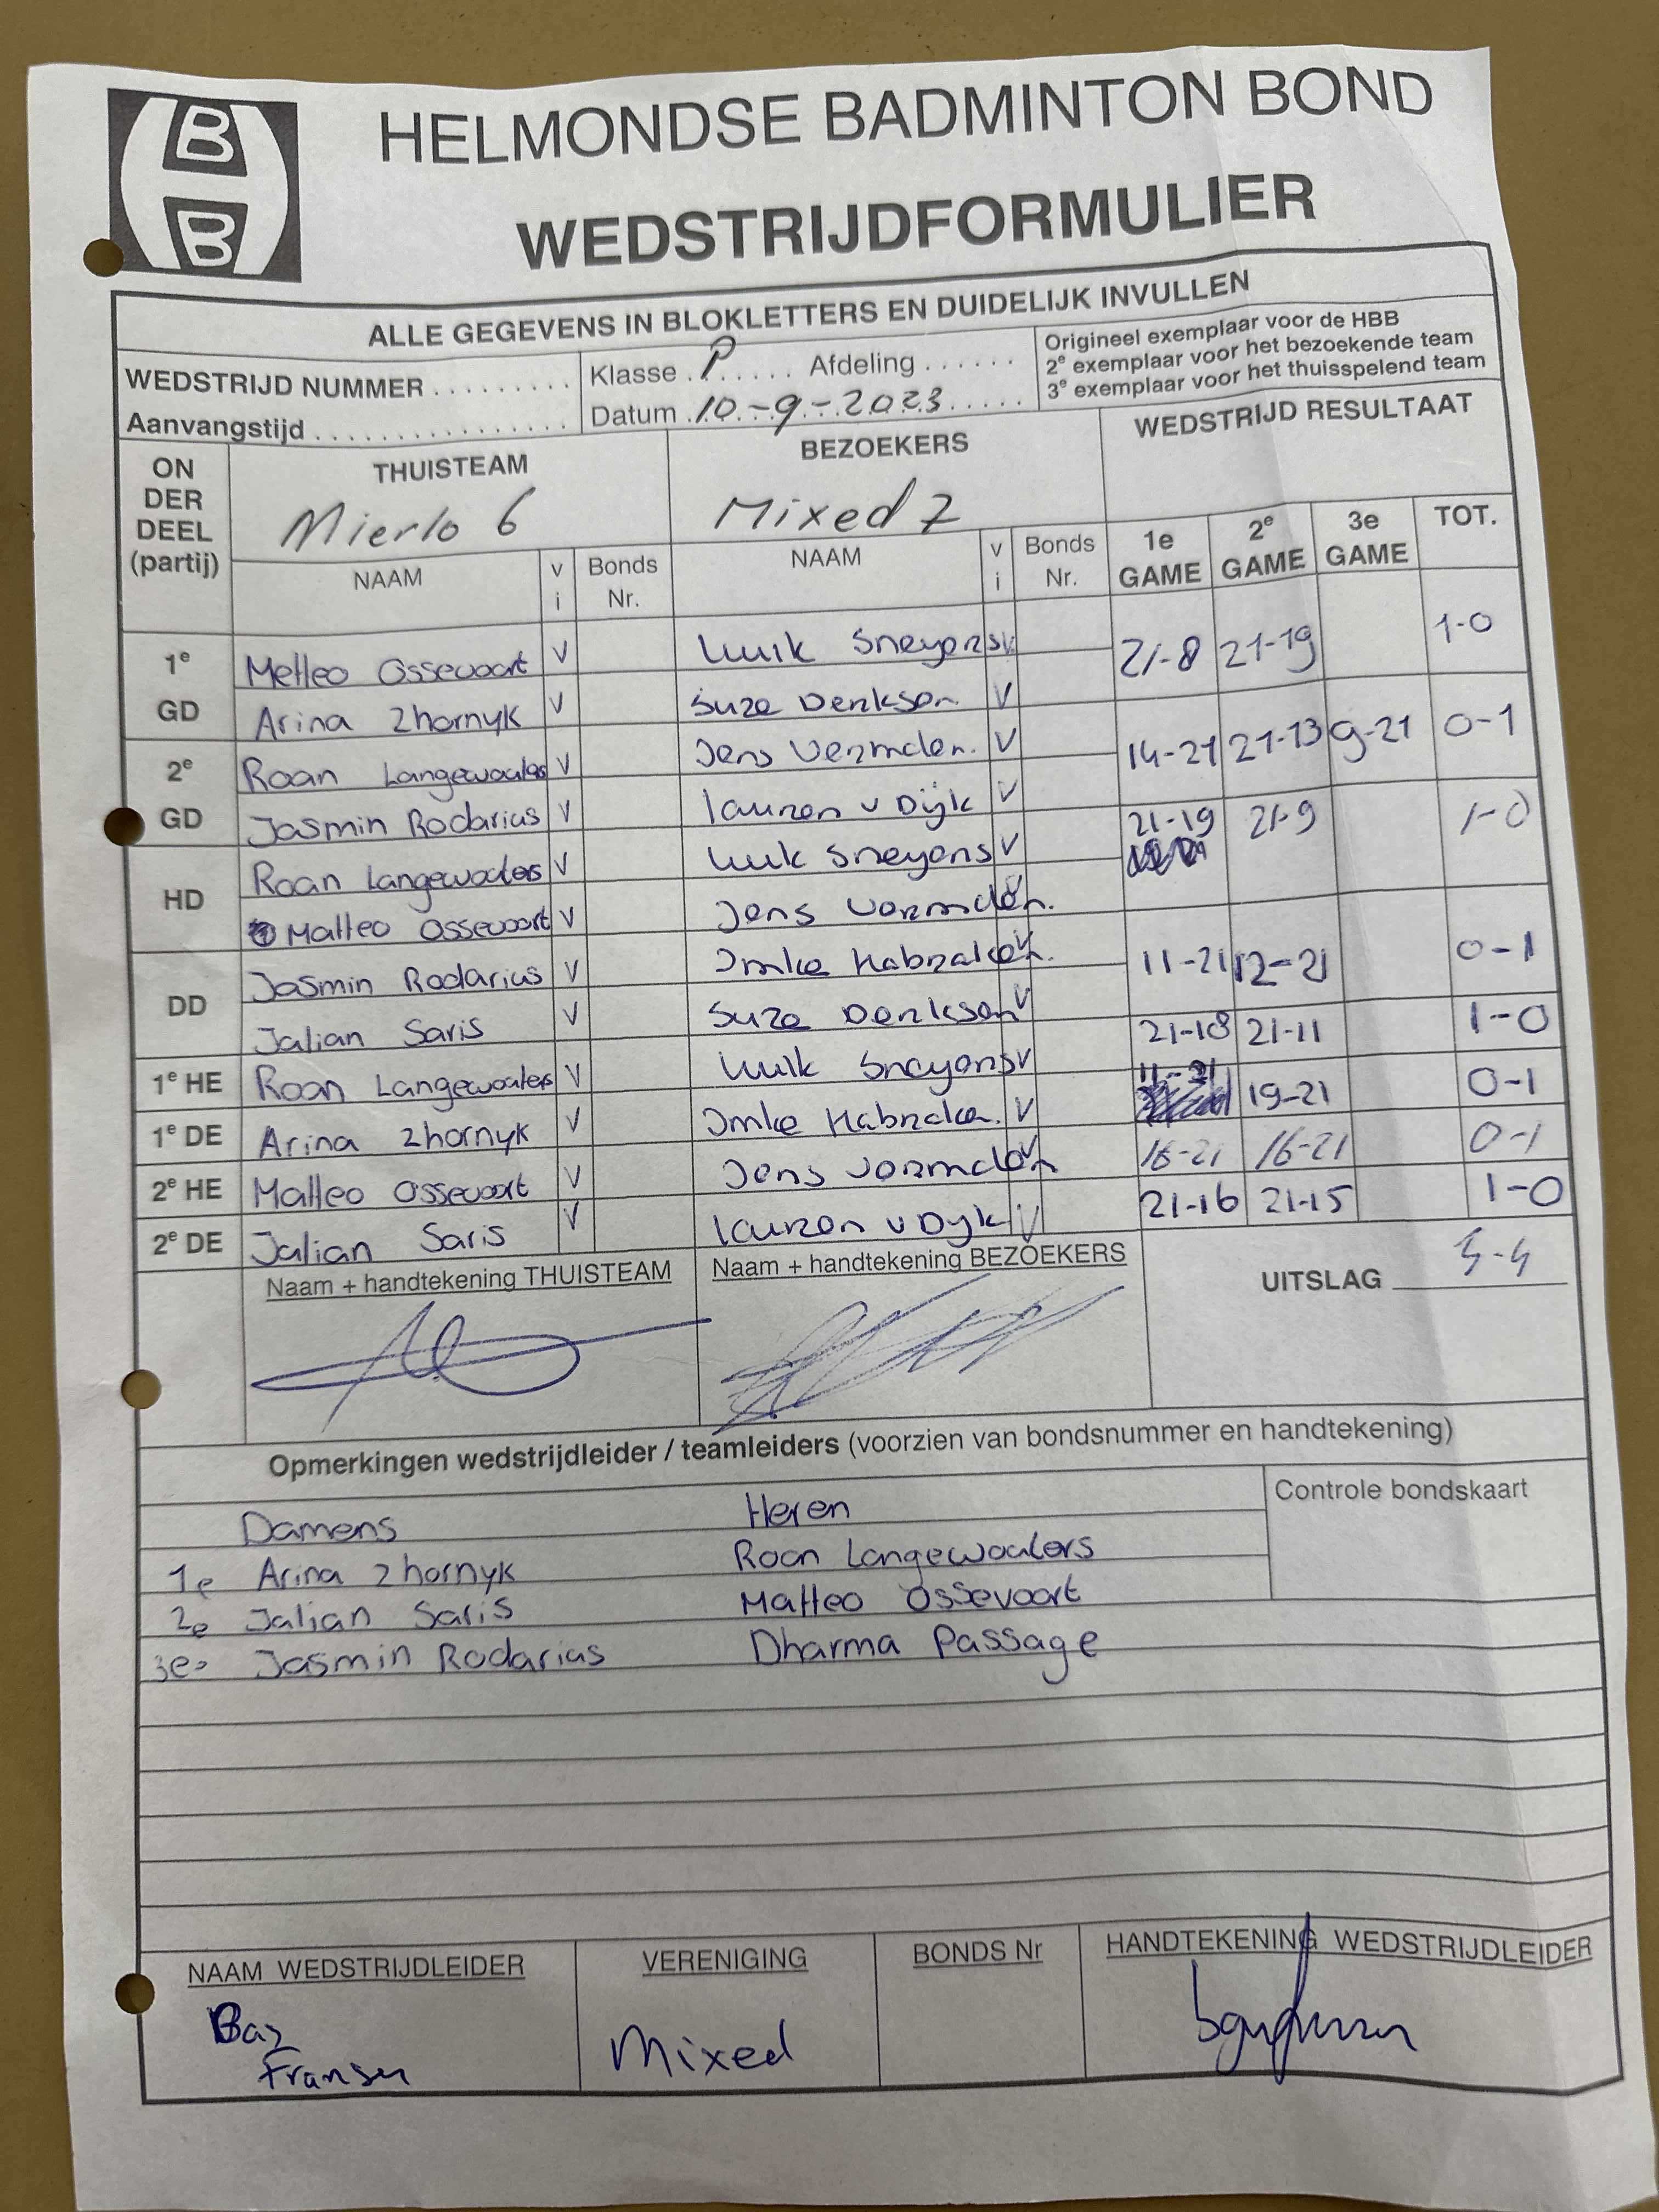 HELMONDSE BADMINTON BOND
WEDSTRIJDFORMULIER
ALLE GEGEVENS IN BLOKLETTERS EN DUIDELIJK INVULLEN
WEDSTRIJD NUMMER ......... Klasse .P...... Afdeling ......
Origineel exemplaar voor de HBB
2e exemplaar voor het bezoekende team
3e exemplaar voor het thuisspelend team
Aanvangstijd ................ Datum .10-9-2023.....
ON DER DEEL (partij) THUISTEAM BEZOEKERS WEDSTRIJD RESULTAAT
Mierlo 6 Mixed 7
NAAM v i Bonds Nr. NAAM v i Bonds Nr. 1e GAME 2e GAME 3e GAME TOT.
1e Metteo Ossevoort V Luuk Sneyens V 21-8 21-19 1-0
GD Arina Zhornyk V Suze Derksen V
2e Roan Langewouters V Jens V 14-21 21-13 9-21 0-1
GD Jasmin Rodarius V Lauren v Dijk V
HD Roan Langewouters V Luuk Sneyens V 21-19 21-9 1-0
Matteo Ossevoort V Jens V
DD Jasmin Rodarius V Imke Habraken V 11-21 12-21 0-1
Jalian Saris V Suze Derksen V
1e HE Roan Langewouters V Luuk Sneyens V 21-18 21-11 1-0
1e DE Arina Zhornyk V Imke Habraken V 11-21 19-21 0-1
2e HE Matteo Ossevoort V Jens V 16-21 16-21 0-1
2e DE Jalian Saris V Lauren v Dyk V 21-16 21-15 1-0
Naam + handtekening THUISTEAM Naam + handtekening BEZOEKERS UITSLAG 4-4
Opmerkingen wedstrijdleider / teamleiders (voorzien van bondsnummer en handtekening)
Damens Heren Controle bondskaart
1e Arina Zhornyk Roan Langewouters
2e Jalian Saris Matteo Ossevoort
3e Jasmin Rodarius Dharma Passage
NAAM WEDSTRIJDLEIDER VERENIGING BONDS Nr HANDTEKENING WEDSTRIJDLEIDER
Bas
Fransen Mixed